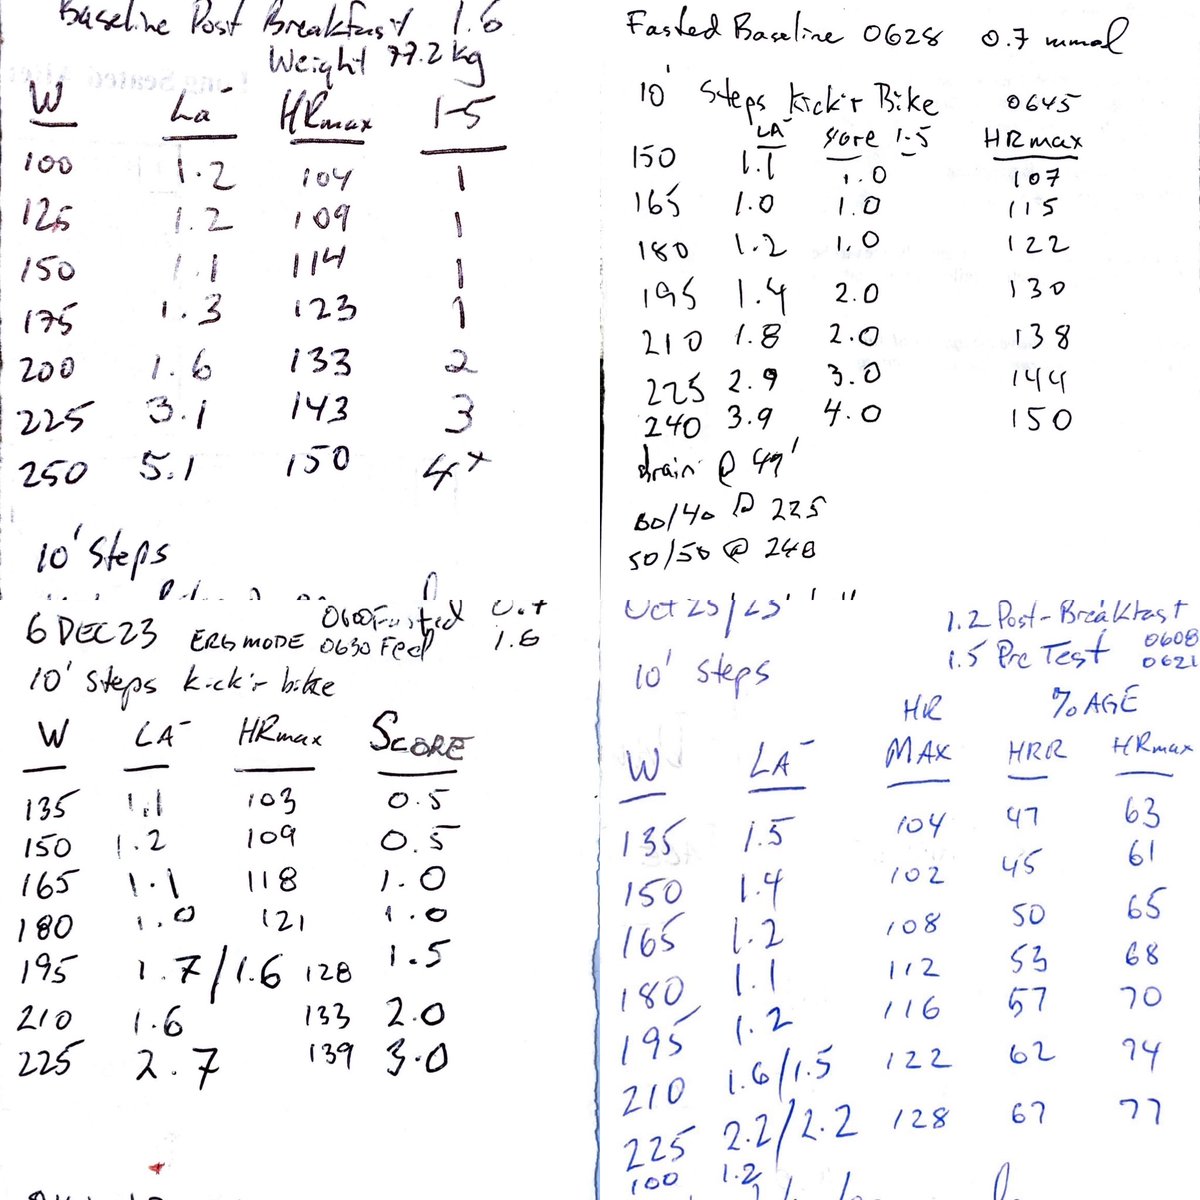 Baseline Post Breakfast 1.6
Weight 77.2kg
W La⁻ HRmax 1-5
100 1.2 104 1
125 1.2 109 1
150 1.1 114 1
175 1.3 123 1
200 1.6 133 2
225 3.1 143 3
250 5.1 150 4+
10' Steps
Fasted Baseline 0628 0.7 mmol
10' Steps Kick'r Bike 0645
LA⁻ score 1-5 HRmax
150 1.1 1.0 107
165 1.0 1.0 115
180 1.2 1.0 122
195 1.4 2.0 130
210 1.8 2.0 138
225 2.9 3.0 144
240 3.9 4.0 150
drain @ 49'
60/40 @ 225
50/50 @ 240
0600 Fasted
6 DEC 23 ERG MODE 0630 Feel 1.6
10' Steps kick'r bike
W LA⁻ HRmax SCORE
135 1.1 103 0.5
150 1.2 109 0.5
165 1.1 118 1.0
180 1.0 121 1.0
195 1.7/1.6 128 1.5
210 1.6 133 2.0
225 2.7 139 3.0
Oct 25/23
1.2 Post-Breakfast 0608
1.5 Pre Test 0621
10' Steps
HR %AGE
W LA⁻ MAX HRR HRmax
135 1.5 104 47 63
150 1.4 102 45 61
165 1.2 108 50 65
180 1.1 112 53 68
195 1.2 116 57 70
210 1.6/1.5 122 62 74
225 2.2/2.2 128 67 77
100 1.2